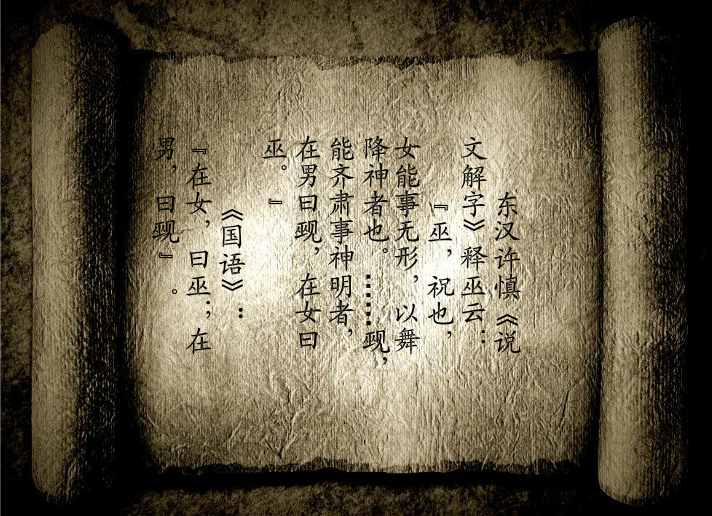 东汉许慎《说
文解字》释巫云：
『巫，祝也，
女能事无形，以舞
降神者也。……觋，
能齐肃事神明者，
在男曰觋，在女曰
巫。』
《国语》：
『在女，曰巫；在
男，曰觋』。